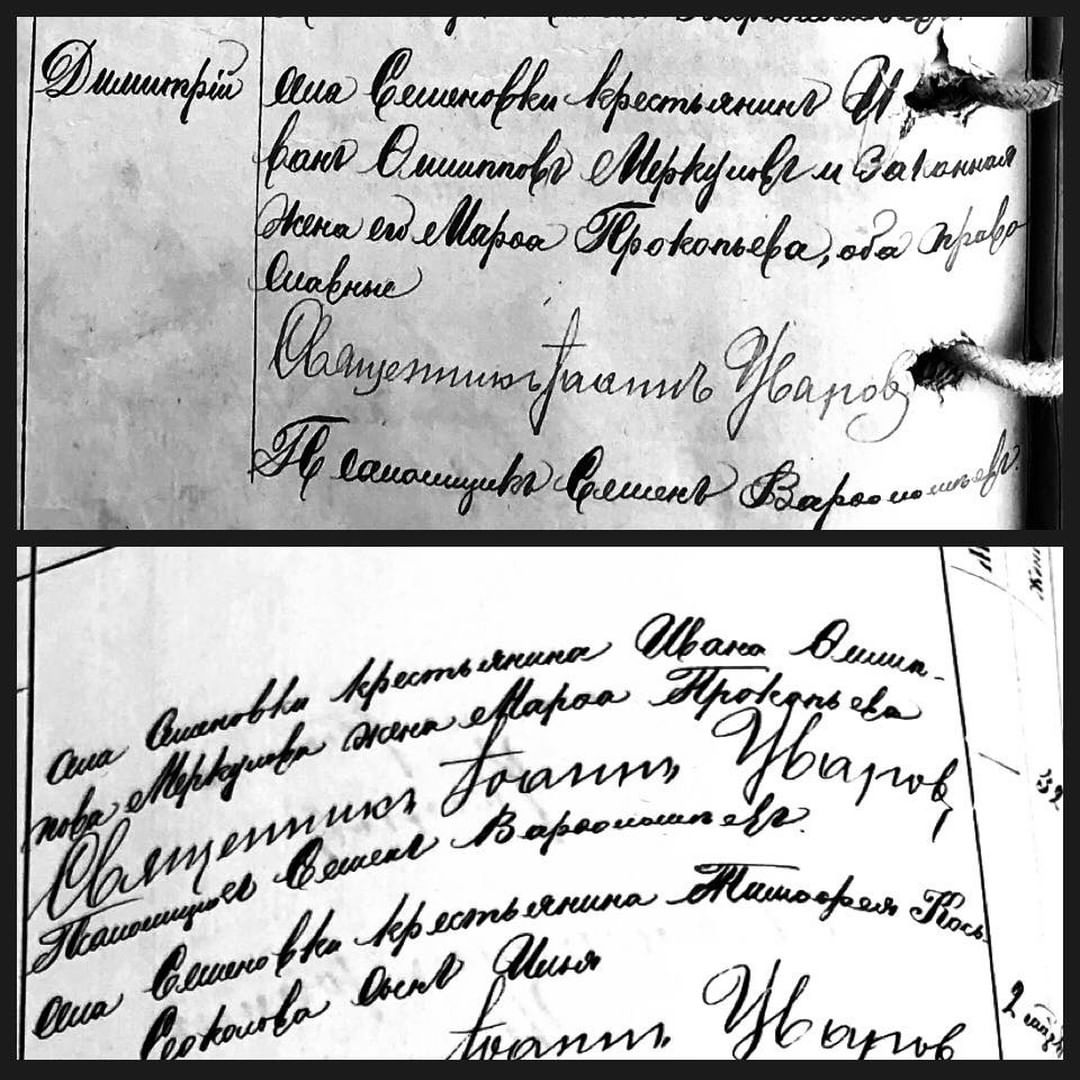 Димитрій
села Семеновки крестьянинъ И
ванъ Филипповъ Меркуловъ и законная
жена его Марѳа Прокопьева, оба право
славные
Священникъ Іоаннъ Уваровъ
Псаломщикъ Семенъ Варѳоломеевъ.
села Семеновки крестьянина Ивана Филип-
пова Меркулова жена Марѳа Прокопьева
Священникъ Іоаннъ Уваровъ
Псаломщикъ Семенъ Варѳоломеевъ.
села Семеновки крестьянина Тимоѳея Кось-
Соколова сынъ Илья
Іоаннъ Уваров
32
2